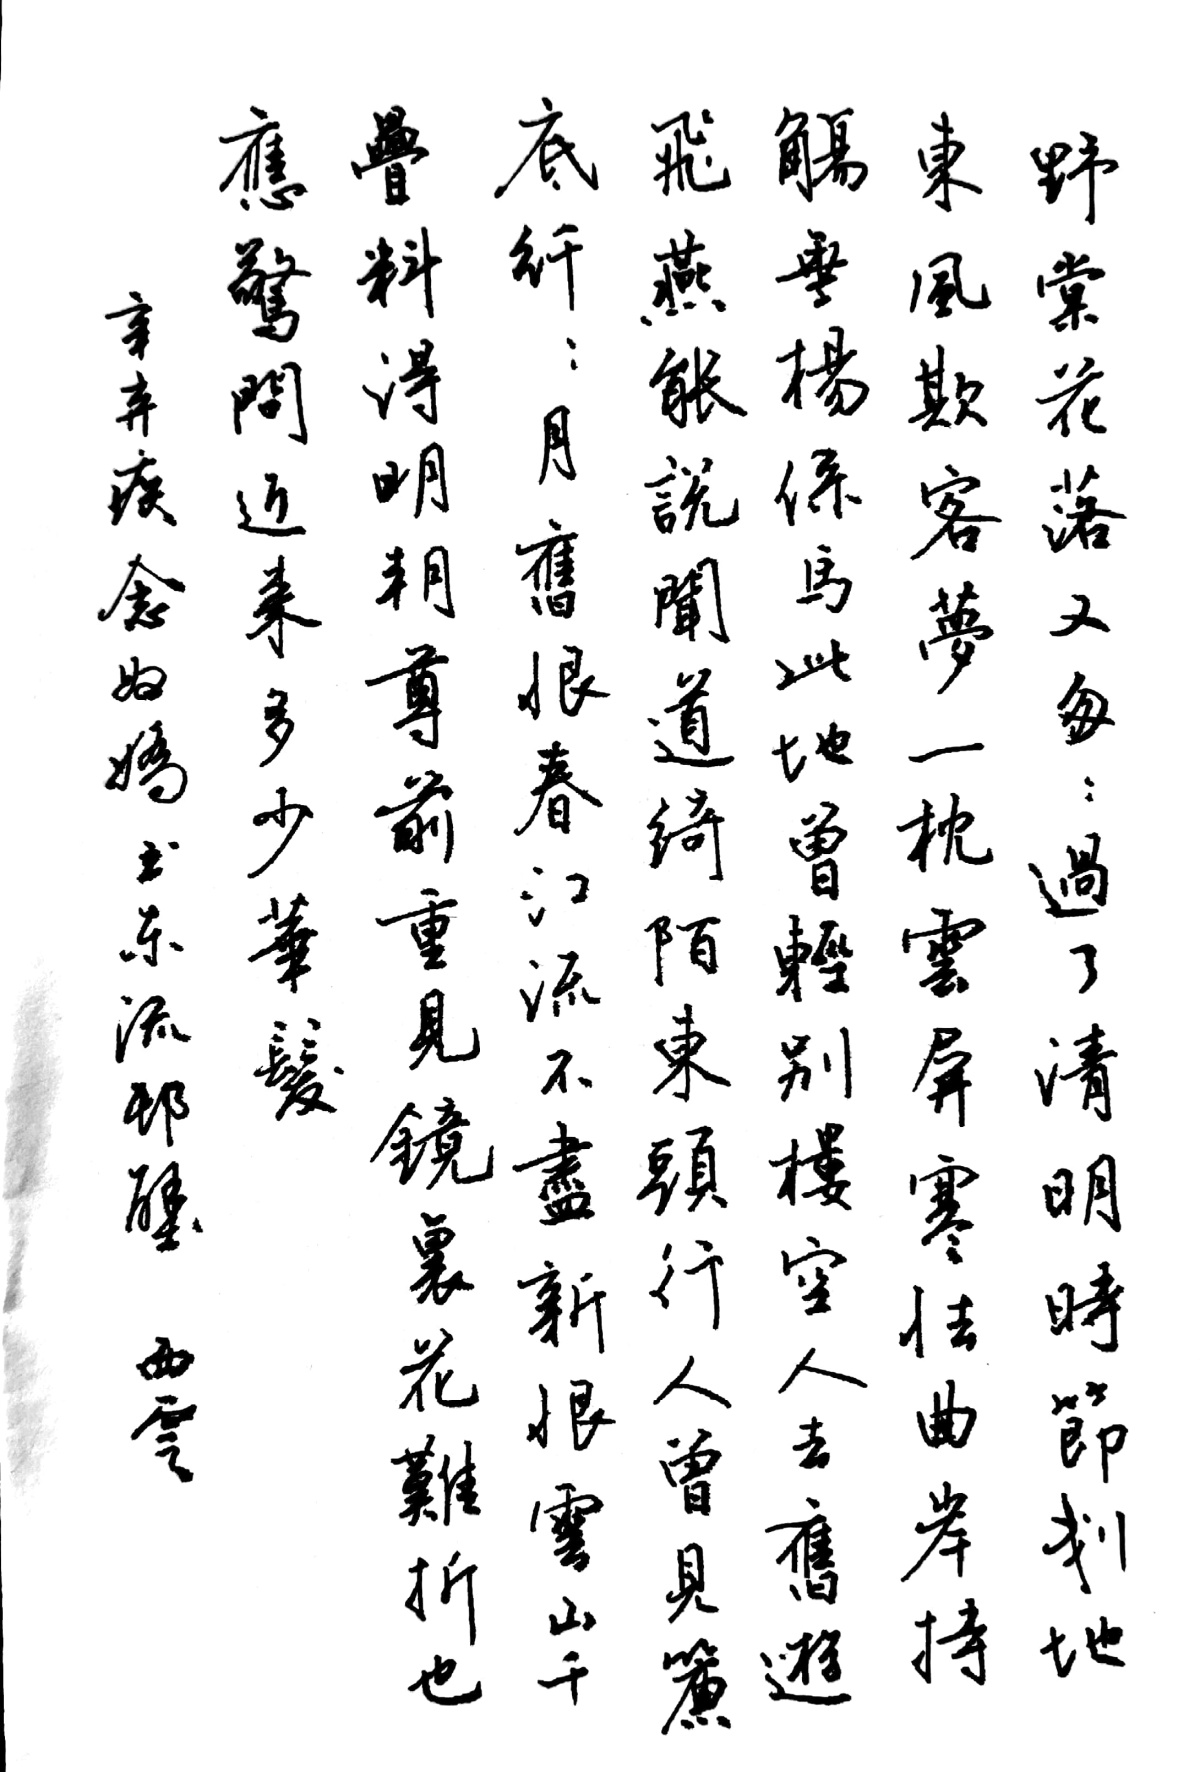 野棠花落又匆:過了清明時節刬地
東風欺客夢一枕雲屏寒怯曲岸持
觴垂楊係馬此地曾輕別樓空人去舊遊
飛燕能說聞道綺陌東頭行人曾見簾
底纤:月舊恨春江流不盡新恨雲山千
疊料得明朝尊前重見鏡裏花難折也
應驚問近來多少華髮
辛弃疾念奴嬌书东流邨壁 西雲